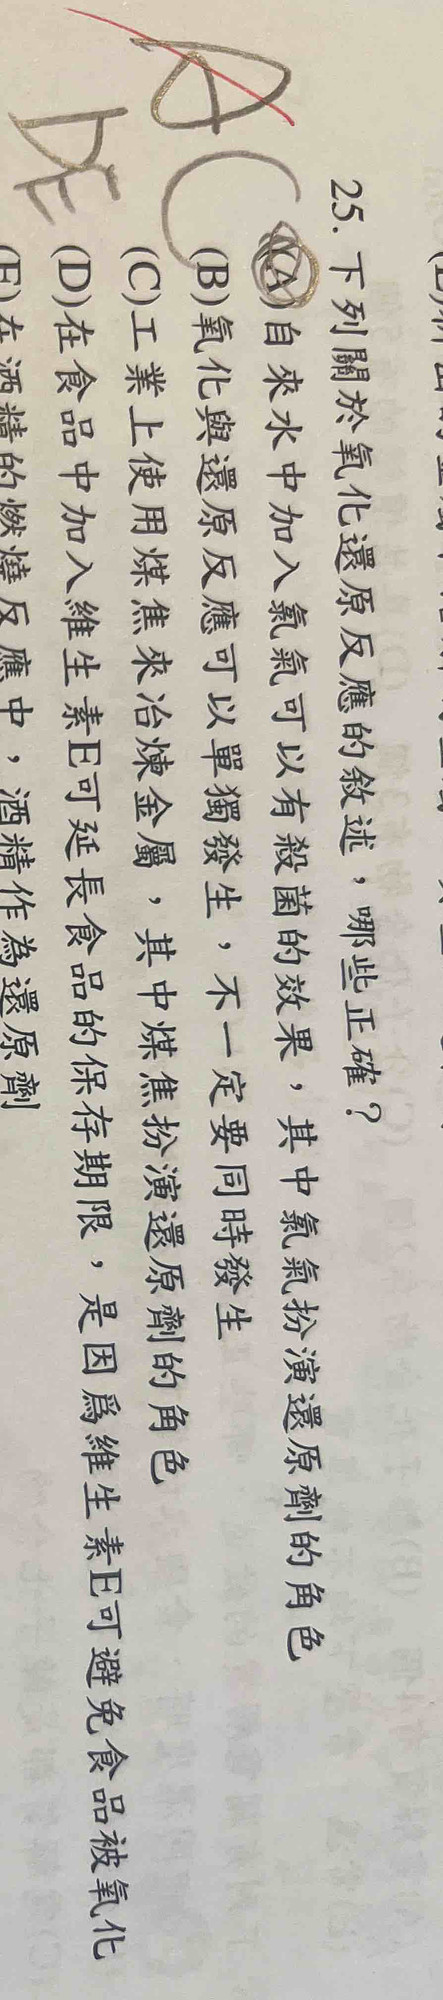 A
C
DE
25. 下列關於氧化還原反應的敘述，哪些正確？
(A)自來水中加入氯氣可以有殺菌的效果，其中氯氣扮演還原劑的角色
(B)氧化與還原反應可以單獨發生，不一定要同時發生
(C)工業上使用煤焦來冶煉金屬，其中煤焦扮演還原劑的角色
(D)在食品中加入維生素E可延長食品的保存期限，是因為維生素E可避免食品被氧化
(E)在酒精的燃燒反應中，酒精作為還原劑